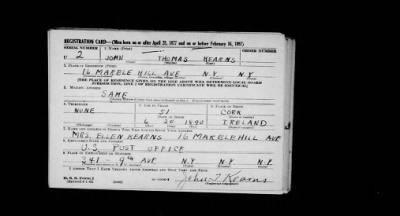 REGISTRATION CARD—(Men born on or after April 28, 1877 and on or before February 16, 1897)
SERIAL NUMBER 1. NAME (Print) ORDER NUMBER
U 2 JOHN THOMAS KEARNS
2. PLACE OF RESIDENCE (Print)
16 MARBLE HILL AVE N.Y. N.Y.
[THE PLACE OF RESIDENCE GIVEN ON THE LINE ABOVE WILL DETERMINE LOCAL BOARD
JURISDICTION; LINE 2 OF REGISTRATION CERTIFICATE WILL BE IDENTICAL]
3. MAILING ADDRESS
SAME
4. TELEPHONE
NONE 51 CORK
6 1890 IRELAND
7. NAME AND ADDRESS OF PERSON WHO WILL ALWAYS KNOW YOUR ADDRESS
MRS. ELLEN KEARNS 16 MARBLE HILL AVE
8. EMPLOYER'S NAME AND ADDRESS
U.S. POST OFFICE
9. PLACE OF EMPLOYMENT OR BUSINESS
341 - 9TH AVE N.Y. N.Y.
I AFFIRM THAT I HAVE VERIFIED ABOVE ANSWERS AND THAT THEY ARE TRUE.
John T. Kearns